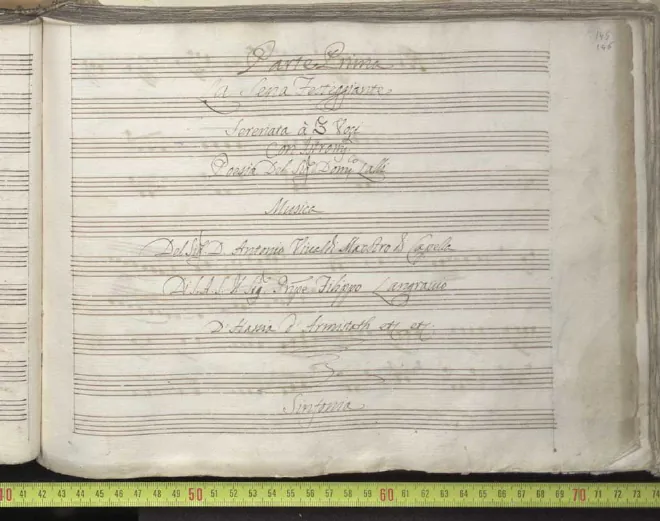 145
Parte Prima
La Sena Festeggiante
Serenata à 3 Voci
Con Istromti
Poesia Del Sigr Domco Lalli
Musica
Del Sigr D. Antonio Vivaldi Maestro di Capella
Di S.A.S. Il Sigr Pnpe Filippo Langravio
D'Hassia d'Armistath etc etc
Sinfonia
40 41 42 43 44 45 46 47 48 49 50 51 52 53 54 55 56 57 58 59 60 61 62 63 64 65 66 67 68 69 70 71 72 73 74